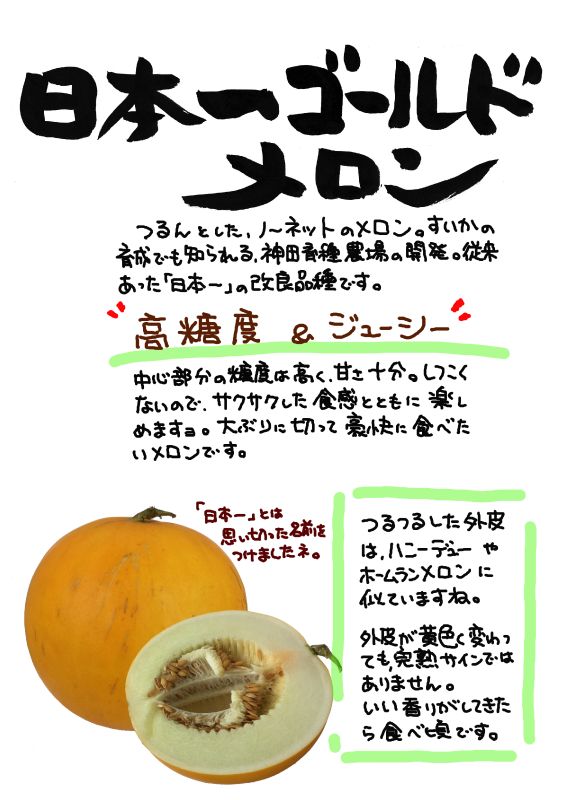 日本一ゴールド
メロン
つるんとした、ノーネットのメロン。すいかの
育成でも知られる、神田育種農場の開発。従来
あった「日本一」の改良品種です。
高糖度 & ジューシー
中心部分の糖度は高く、甘さ十分。しつこく
ないので、サクサクした食感とともに楽し
めますョ。大ぶりに切って豪快に食べた
いメロンです。
「日本一」とは
思い切った名前を
つけましたネ。
つるつるした外皮
は、ハニーデューや
ホームランメロンに
似ていますね。
外皮が黄色く変わっ
ても、完熟サインでは
ありません。
いい香りがしてきた
ら食べ頃です。